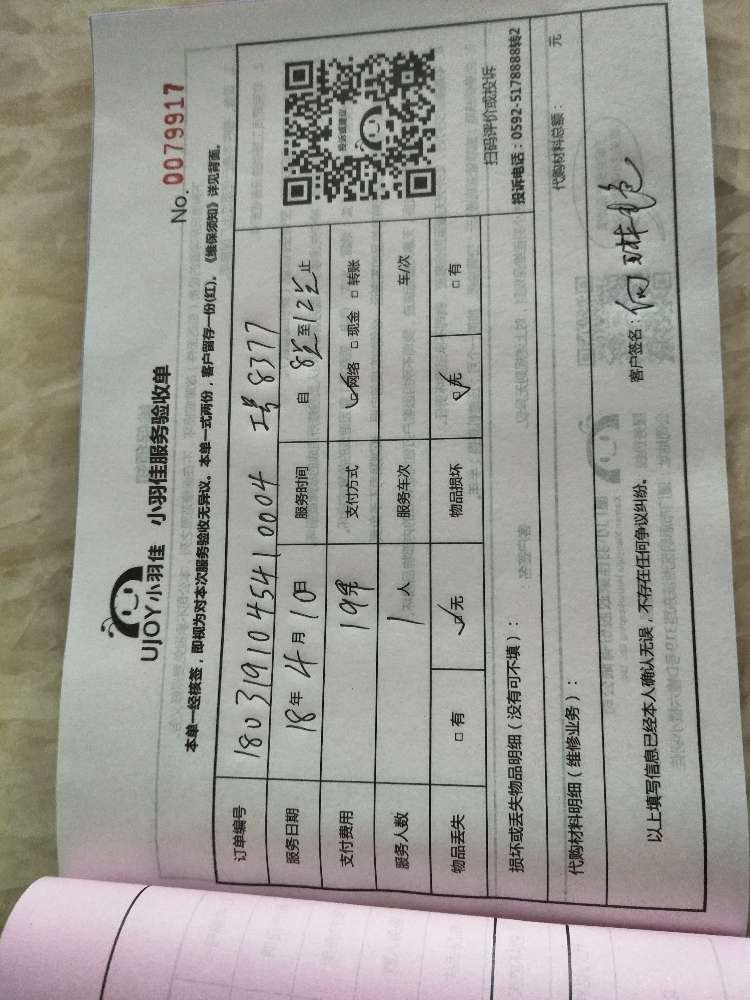 UJOY小羽佳 小羽佳服务验收单
No. 0079917
本单一经核签，即视为对本次服务验收无异议。本单一式两份，客户留存一份(红)，《维保须知》详见背面。
订单编号 180319104541 0004 工号 8377
服务日期 18年 4月 10日 服务时间 自 8点 至 12点 止
支付费用 19元 支付方式 ☑网络 □现金 □转账
服务人数 1人 服务车次 车/次
物品丢失 □有 ☑无 物品损坏 ☑无 □有
投诉或建议
扫码评价或投诉
投诉电话：0592-5178888转2
损坏或丢失物品明细（没有可不填）：
代购材料明细（维修业务）： 代购材料总额： 元
以上填写信息已经本人确认无误，不存在任何争议纠纷。 客户签名：